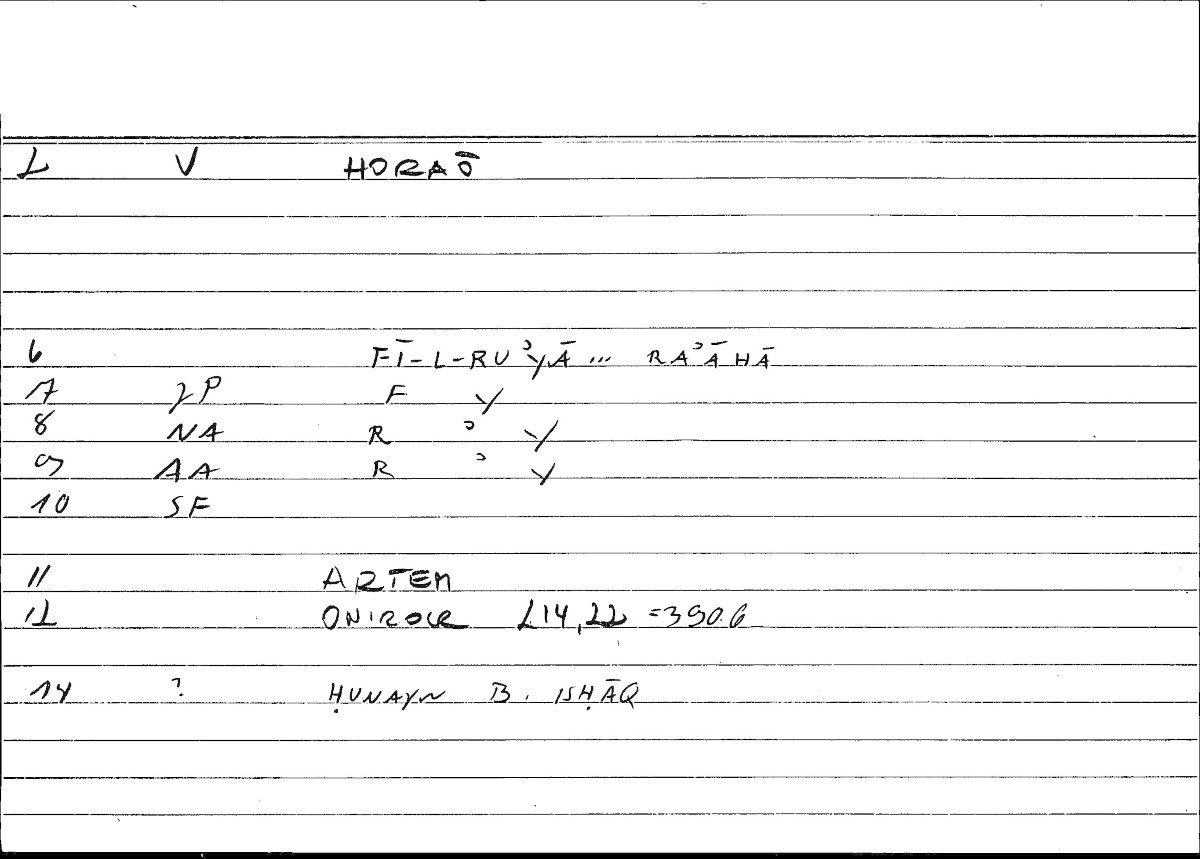 L V HORAŌ
6 FĪ-L-RUʾYĀ ... RAʾĀHĀ
17 F Y
8 NA R ʾ Y
9 AA R ʾ Y
10 SF
11 ARTEM
12 ONIROCR 214,22 =390.6
14 ? ḤUNAYN B. ISḤĀQ